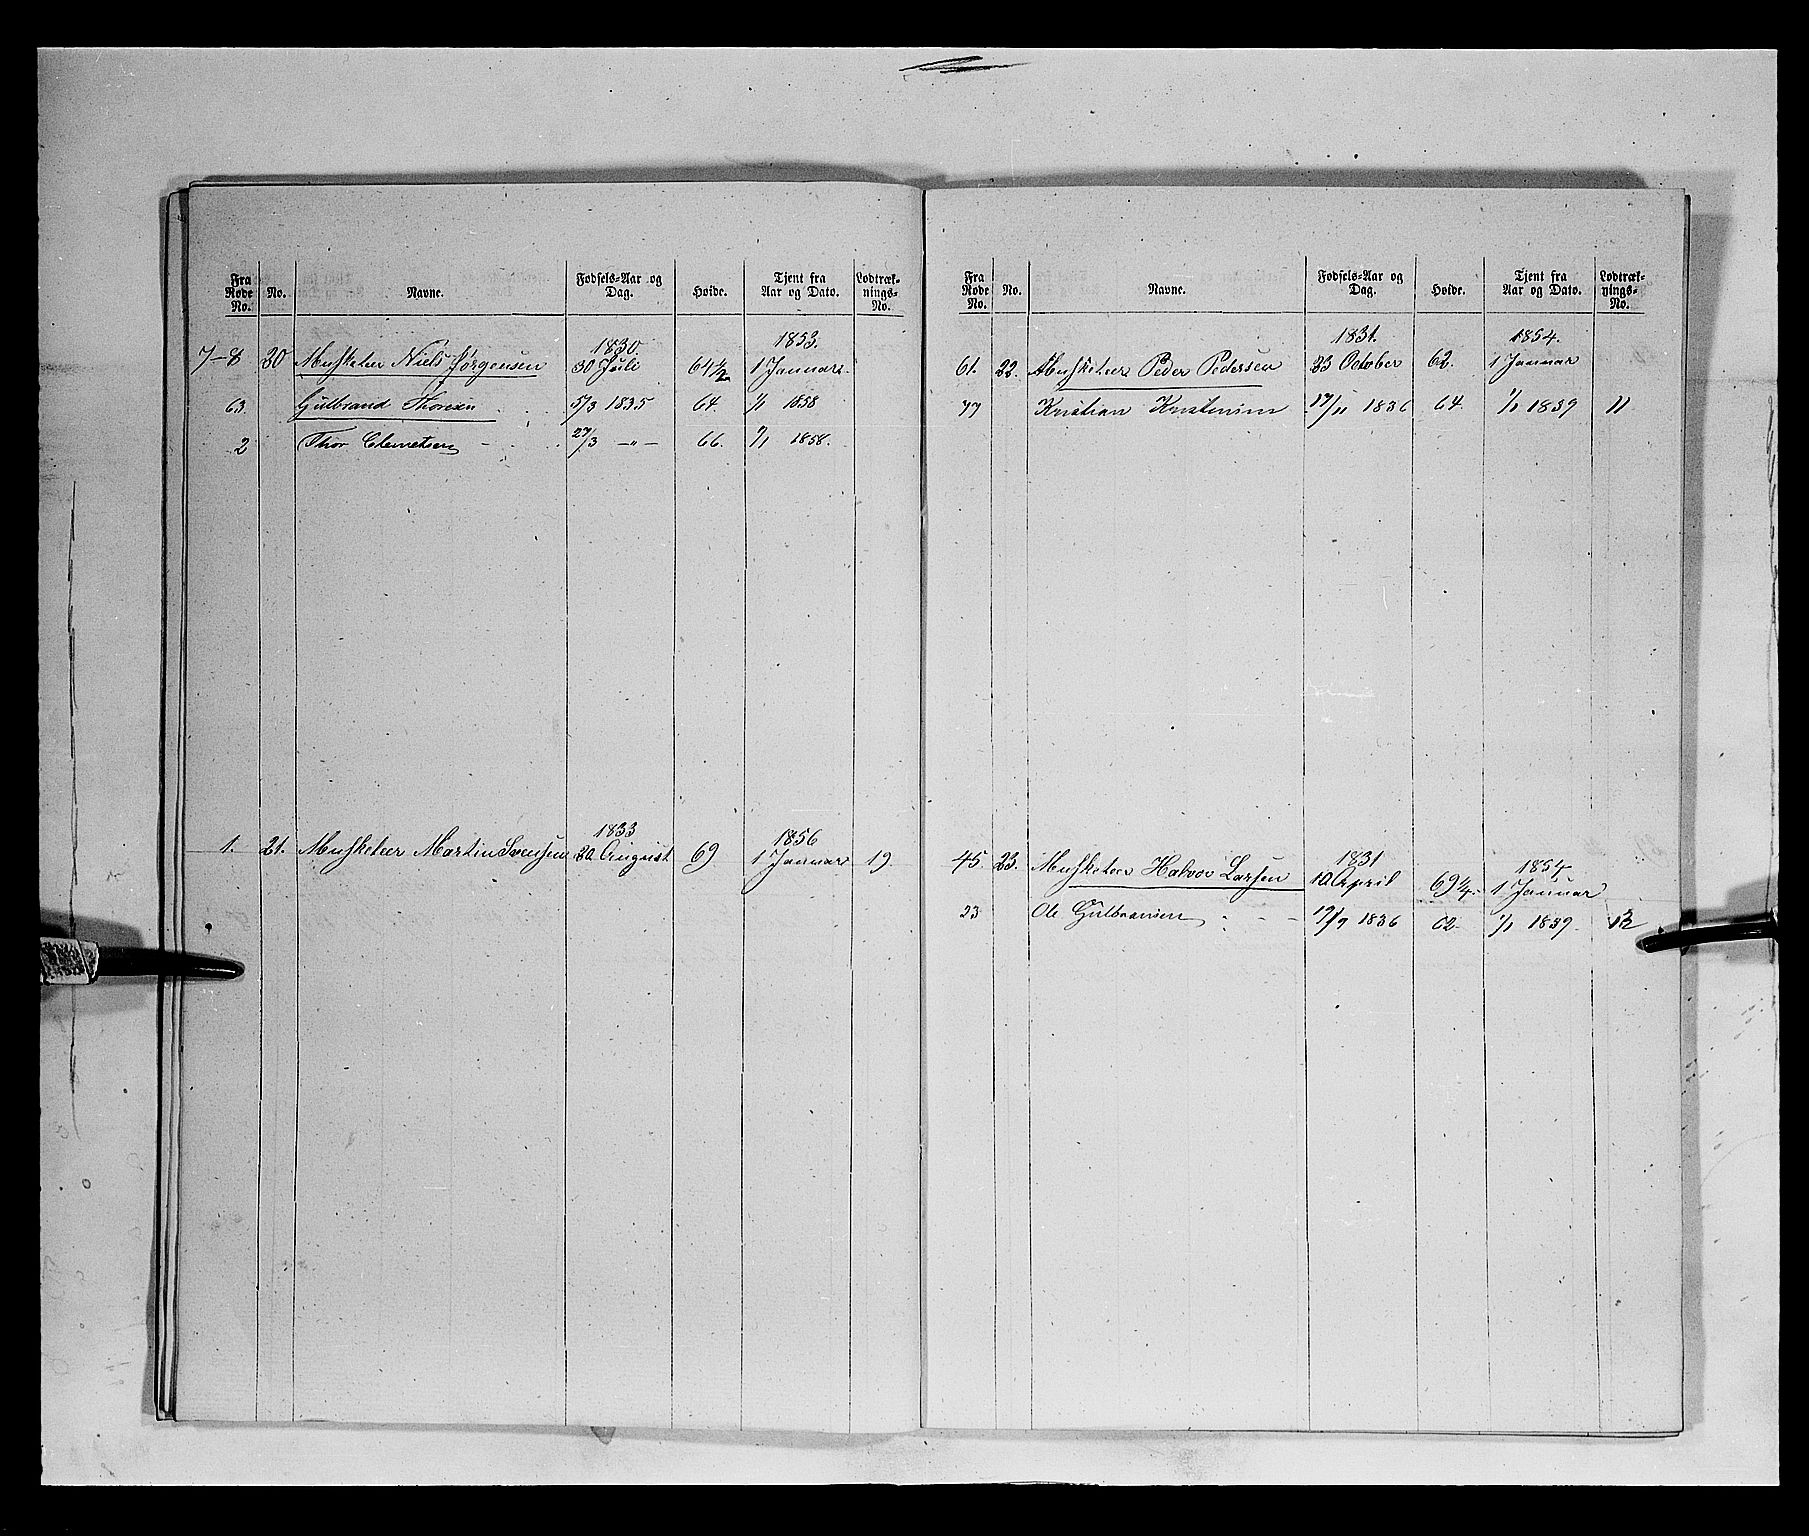 Fra Rode No. No. Navne. Fødsels-Aar og Dag. Høide. Tjent fra Aar og Dato. Lodtræk-nings-No.
1830. 1853.
7-8 20 Musketeer Niels Jørgensen 30 Juli 64½ 1 Januar
63 Gulbrand Thoresen 5/3 1835 64. 1/1 1858
2 Thor Clemetsen 27/3 —"— 66. 1/1 1858.
1833 1856
1. 21. Musketeer Martin Svensen 20 August 69 1 Januar 19
Fra Rode No. No. Navne. Fødsels-Aar og Dag. Høide. Tjent fra Aar og Dato. Lodtræk-nings-No.
1831. 1854.
61. 22. Musketeer Peder Pedersen 23 October 62. 1 Januar
77 Kristian Kristensen 17/11 1836 64. 1/1 1859 11
1831 1854
45. 23. Musketeer Halvor Larsen 10 April 69¼. 1 Januar
23 Ole Gulbransen 17/7 1836 62. 1/1 1859. 12